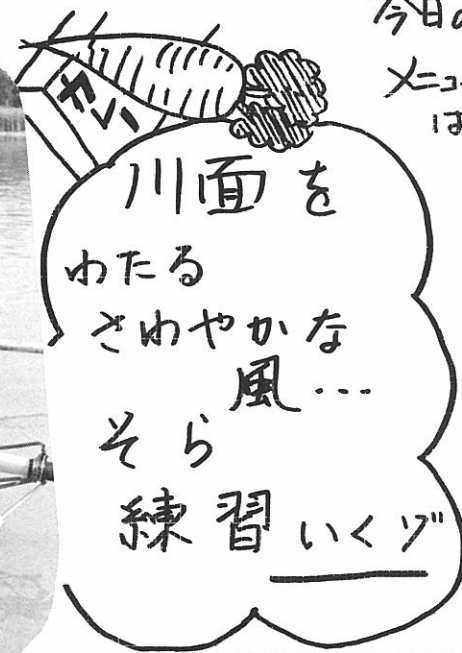 今日の
メニュー
は
カレー
川面を
わたる
さわやかな
風…
そら
練習いくゾ